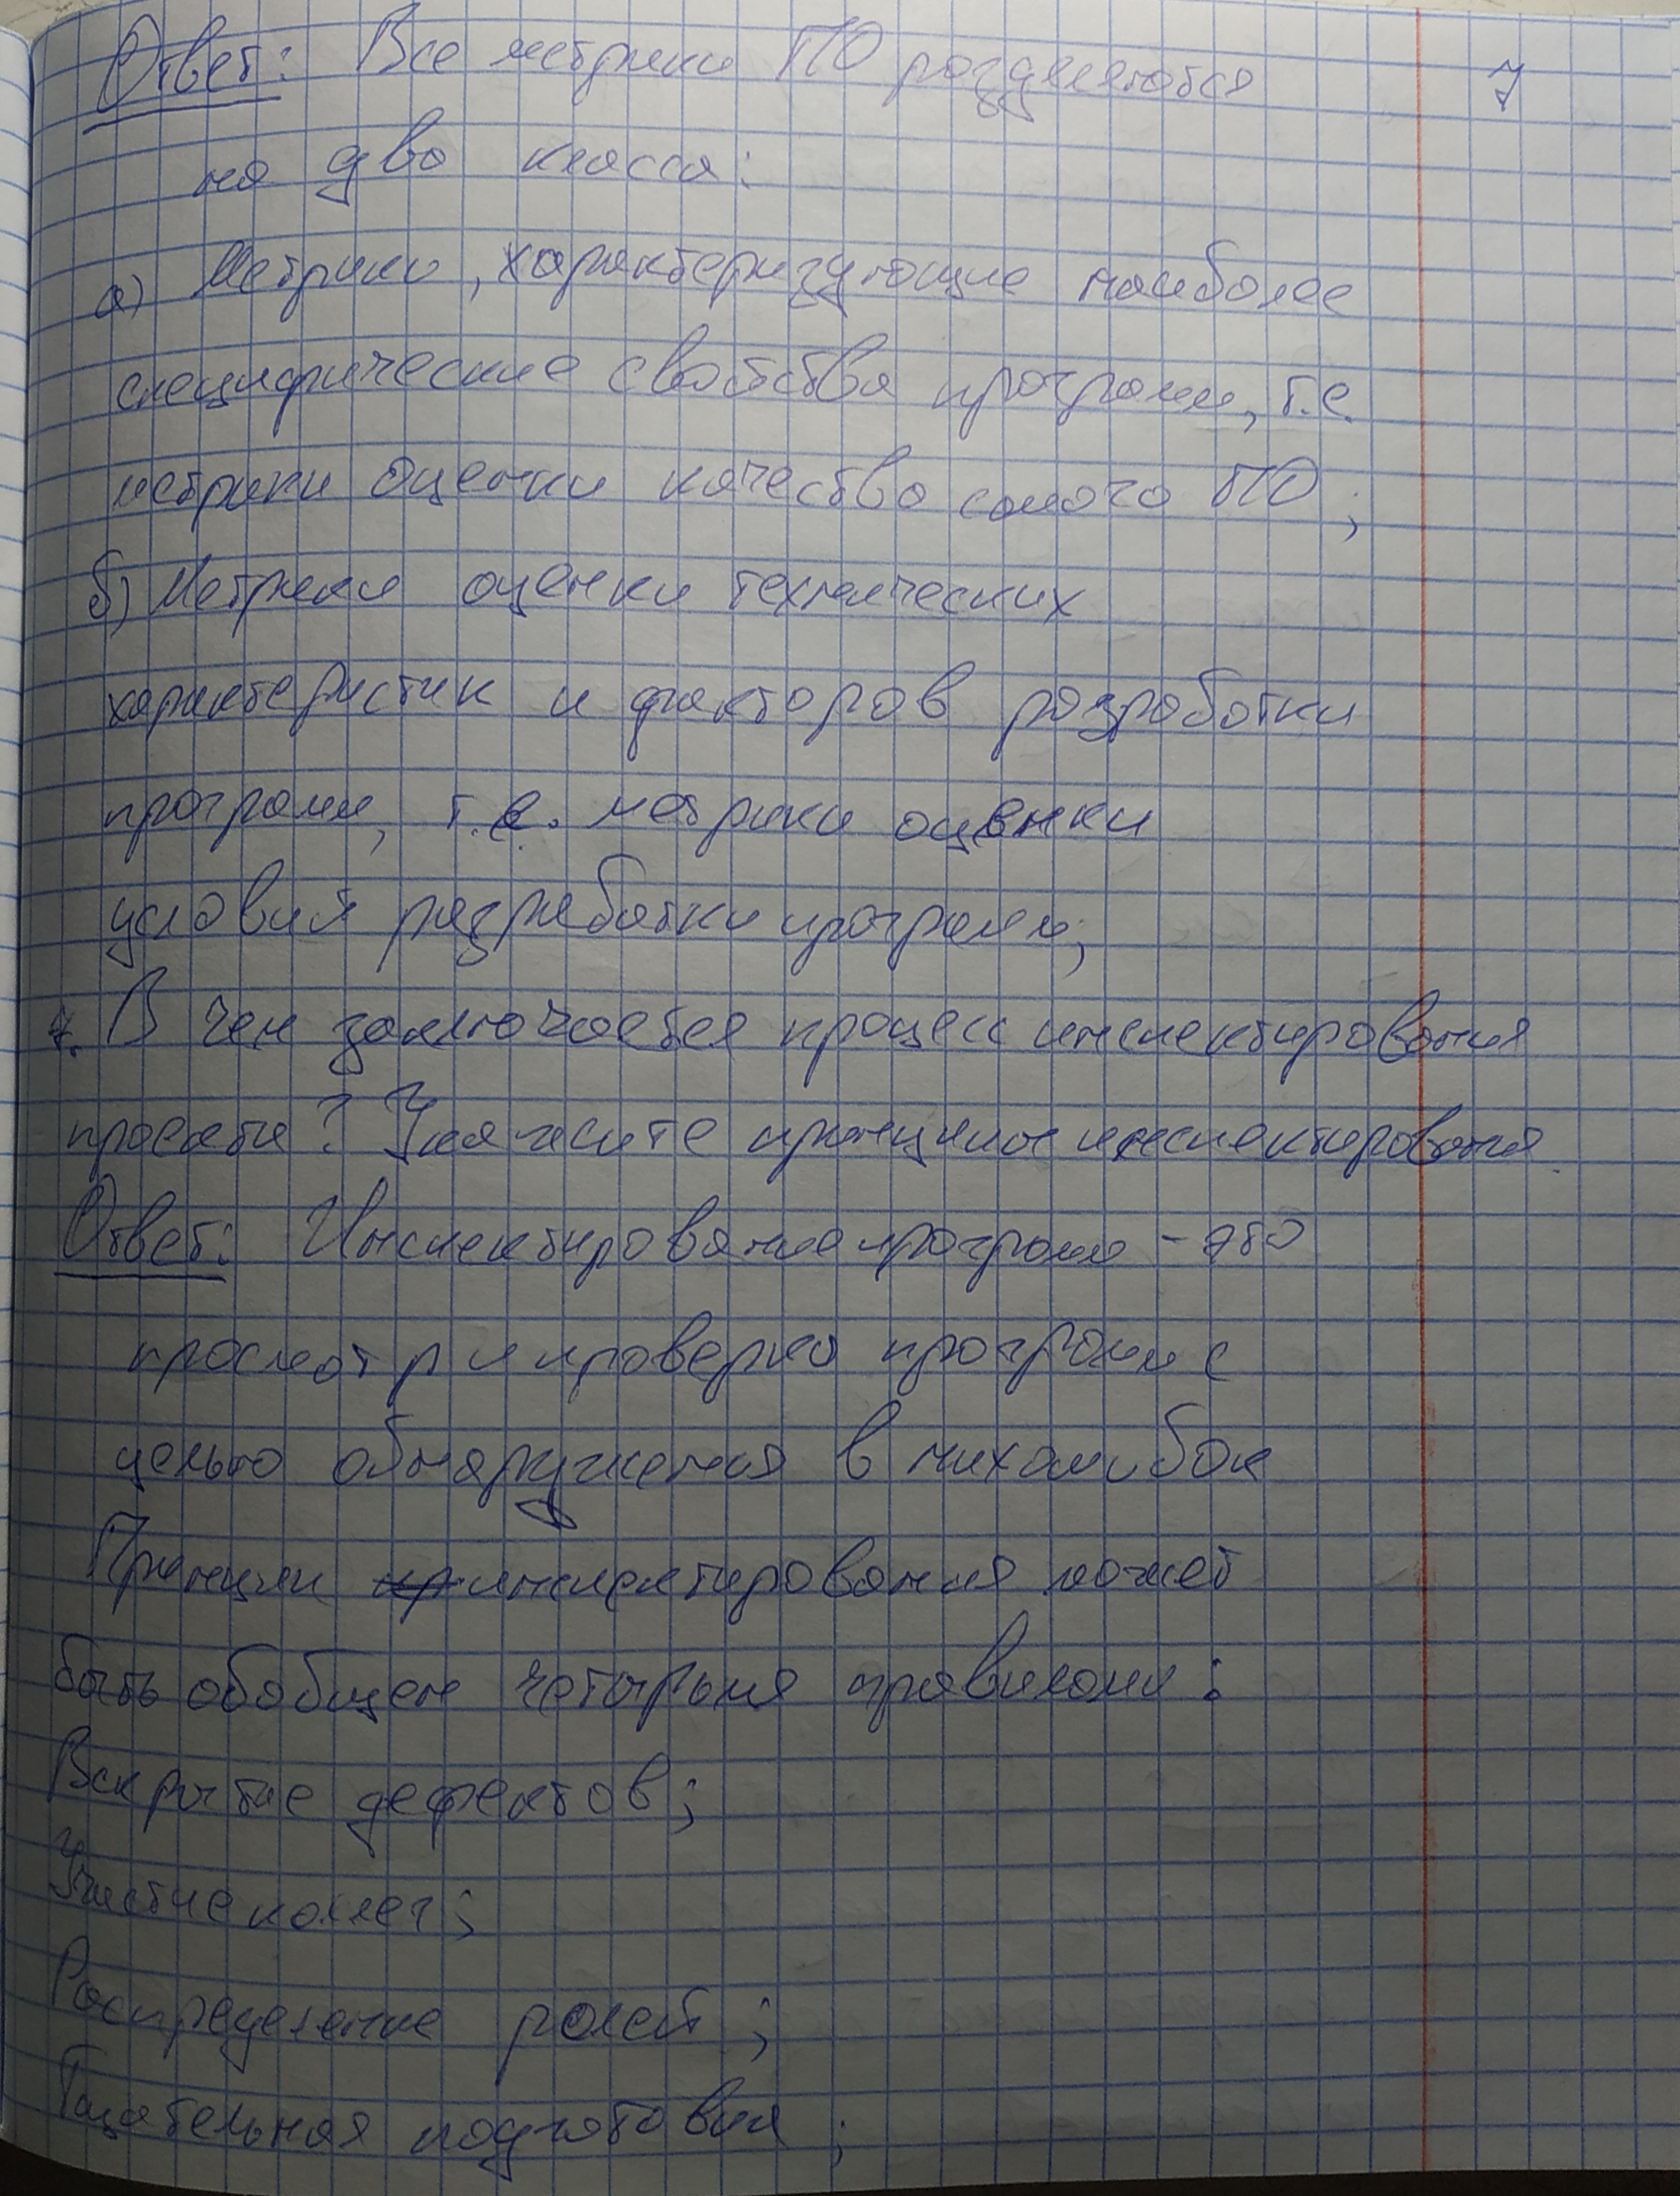 Ответ: Все метрики ПО разделяются
7
на два класса:
а) Метрики, характеризующие наиболее
специфические свойства программ, т.е.
метрики оценки качества самого ПО;
б) Метрики оценки технических
характеристик и факторов разработки
программ, т.е. метрики оценки
условий разработки программ;
7. В чем заключается процесс инспектирования
проекта? Укажите принципы инспектирования.
Ответ: Инспектирование программ - это
просмотр и проверка программ с
целью обнаружения в них ошибок
Принцип инспектирования может
быть обобщен четырьмя правилами:
Вскрытие дефектов;
Участие коллег;
Распределение ролей;
Тщательная подготовка;